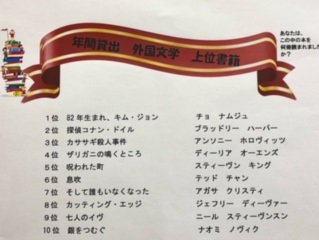 年間貸出　外国文学　上位書籍
あなたは、
この中の本を
何冊読まれました
か？
1位　82年生まれ、キム・ジヨン　チョ　ナムジュ
2位　探偵コナン・ドイル　ブラッドリー　ハーパー
3位　カササギ殺人事件　アンソニー　ホロヴィッツ
4位　ザリガニの鳴くところ　ディーリア　オーエンズ
5位　呪われた町　スティーヴン　キング
6位　息吹　テッド　チャン
7位　そして誰もいなくなった　アガサ　クリスティ
8位　カッティング・エッジ　ジェフリー　ディーヴァー
9位　七人のイヴ　ニール　スティーヴンスン
10位　銀をつむぐ　ナオミ　ノヴィク